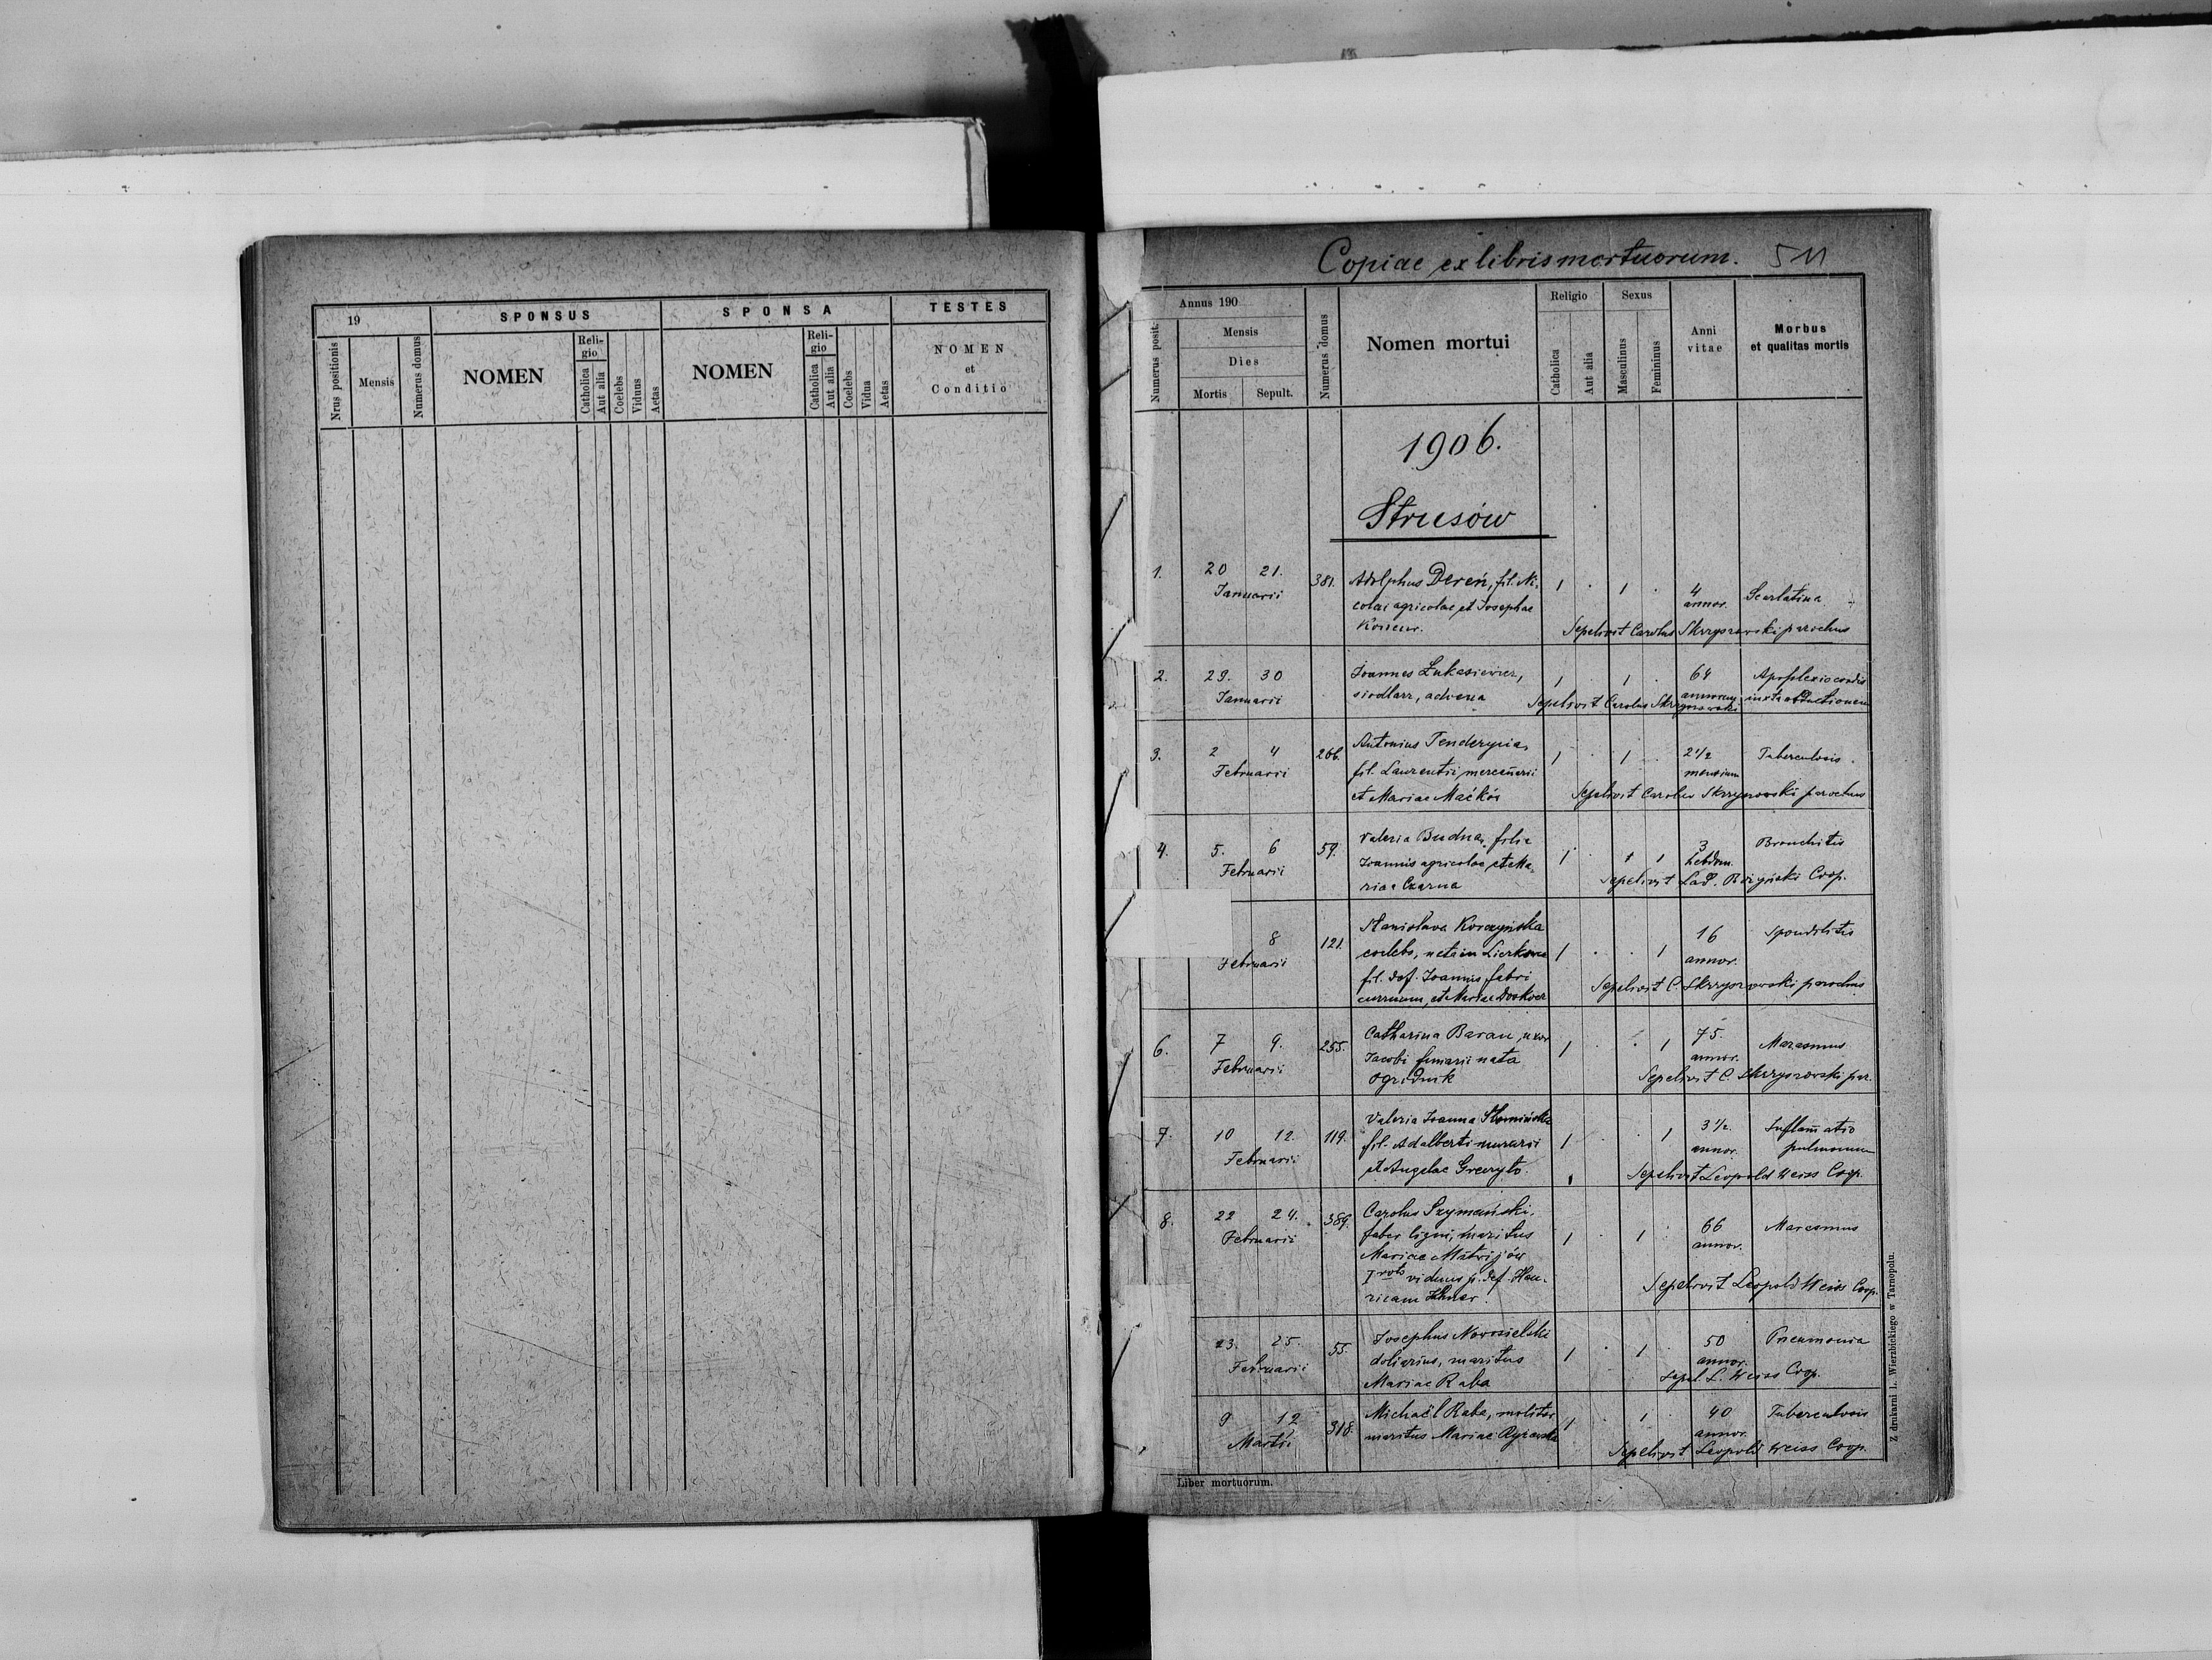 19
SPONSUS
SPONSA
TESTES
Nrus positionis
Mensis
Numerus domus
NOMEN
Reli-
gio
Catholica
Aut alia
Coelebs
Viduus
Aetas
NOMEN
Reli-
gio
Catholica
Aut alia
Coelebs
Vidua
Aetas
NOMEN
et
Conditio
Copiae ex libris mortuorum. 511
Annus 190
Numerus posit.
Mensis
Dies
Mortis
Sepult.
Numerus domus
Nomen mortui
Religio
Catholica
Aut alia
Sexus
Masculinus
Femininus
Anni
vitae
Morbus
et qualitas mortis
1906.
Strusów
1. 20 21. 381. Adolphus Dereń, fil. Ni- 1 . 1 . 4 Scarlatina
Januarii colai agricolae et Josephae annor.
Sepelivit Carolus Skrzyszowski parochus
2. 29. 30 Joannes Łukasiewicz, 1 1 . 64 Apoplexio cordis
Januarii siodlarz, advena annorum iuxta obductionem
Sepelivit Carolus Skrzyszowski
3. 2 4 266. Antonius Tenderycia, 1 . 1 . 2 1/2 Tuberculosis.
Februarii fil. Laurentii mercenarii mensium
et Mariae Maćków Sepelivit Carolus Skrzyszowski parochus
4. 5. 6 59. Valeria Budna, filia 1 . 1 1 3 Bronchitis
Februarii Joannis agricolae et Ma- hebdom.
riae Czarna Sepelivit Lad. Coop.
8 121. Stanislava Korczyńska 16 Spondilitis
Februarii coelebs, nata in 1 . . 1 annor.
fil. def. Joannis fabri Sepelivit C. Skrzyszowski parochus
curruum, et Mariae
6. 7 9. 255. Catharina Baran, uxor 1 . . 1 75. Marasmus
Februarii Jacobi funarii nata annor.
Ogrodnik Sepelivit C. Skrzyszowski par.
7. 10 12. 119. Valeria Joanna Słomińska 3 1/2. Inflam̄atio
Februarii fil. Adalberti murarii 1 . . 1 annor. pulmonum
et Angelae Sepelivit Leopold Weiss Coop.
8. 22 24. 389. Carolus Szymański, 66 Marasmus
Februarii faber ligni, maritus 1 . 1 . annor.
Mariae Matwijów
viduus p. def. Hen- Sepelivit Leopold Weiss Coop.
ricam
23. 25. 55. Josephus Nowosielski 50 Pneumonia
Februarii doliarius, maritus 1 . 1 . annor.
Mariae Raba Sepel. L. Weiss Coop.
9 12 318. Michaël Raba, molitor 1 . 1 . 40 Tuberculosis
Martii maritus Mariae annor.
Sepelivit Leopold Weiss Coop.
Liber mortuorum.
Z drukarni L. Wierzbickiego w Tarnopolu.